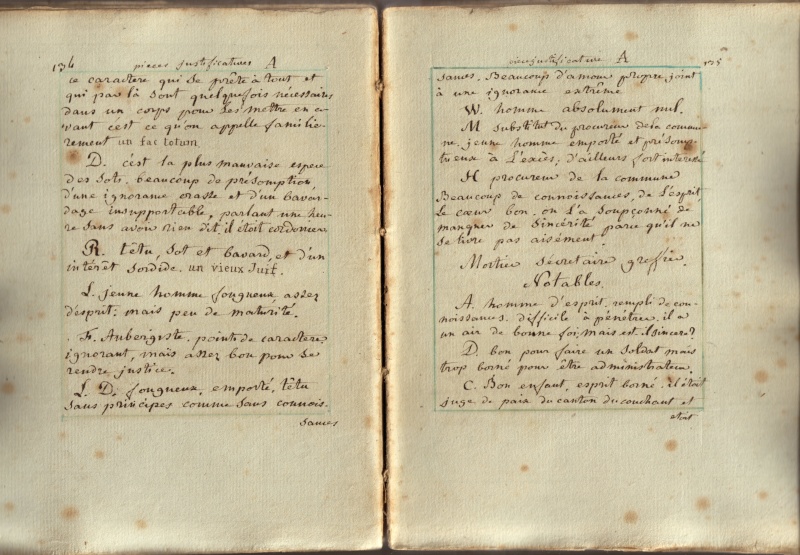 134 pieces justificatives A
ce caractere qui se prête à tout et
qui par là sont quelquefois nécessaires
dans un corps pour les mettre en a-
vant c'est ce qu'on appelle familie-
rement un fac totum
D. c'est la plus mauvaise espece
des sots. beaucoup de présomption,
d'une ignorance crasse et d'un bavar-
dage insupportable, parlant une heu-
re sans avoir rien dit. il étoit cordonnier
R. têtu, sot et bavard, et d'un
intérêt sordide. un vieux Juif.
L. jeune homme fougueux assez
d'esprit. mais peu de maturité.
F. Aubergiste. point de caractere
ignorant, mais assez bon pour se
rendre justice.
L. D. fougueux, emporté, têtu
sans principes comme sans connois-
sances
piece justificative A 135
sances. Beaucoup d'amour propre joint
à une ignorance extrême
W. homme absolument nul.
M substitut du procureur de la commu-
ne. jeune homme emporté et présomp-
tueux à l'excès; d'ailleurs fort interessé
H procureur de la commune
Beaucoup de connoissances, de l'esprit,
le cœur bon. on l'a soupçonné de
manquer de sincérité parce qu'il ne
se livre pas aisément.
Mortier sécretaire greffier.
Notables.
A. homme d'esprit. rempli de con-
noissances. difficile à pénétrer. il a
un air de bonne foi, mais est-il sincere?
D. bon pour faire un soldat mais
trop borné pour être administrateur.
C. Bon enfant, esprit borné. il étoit
juge de paix du canton du couchant et
etoit